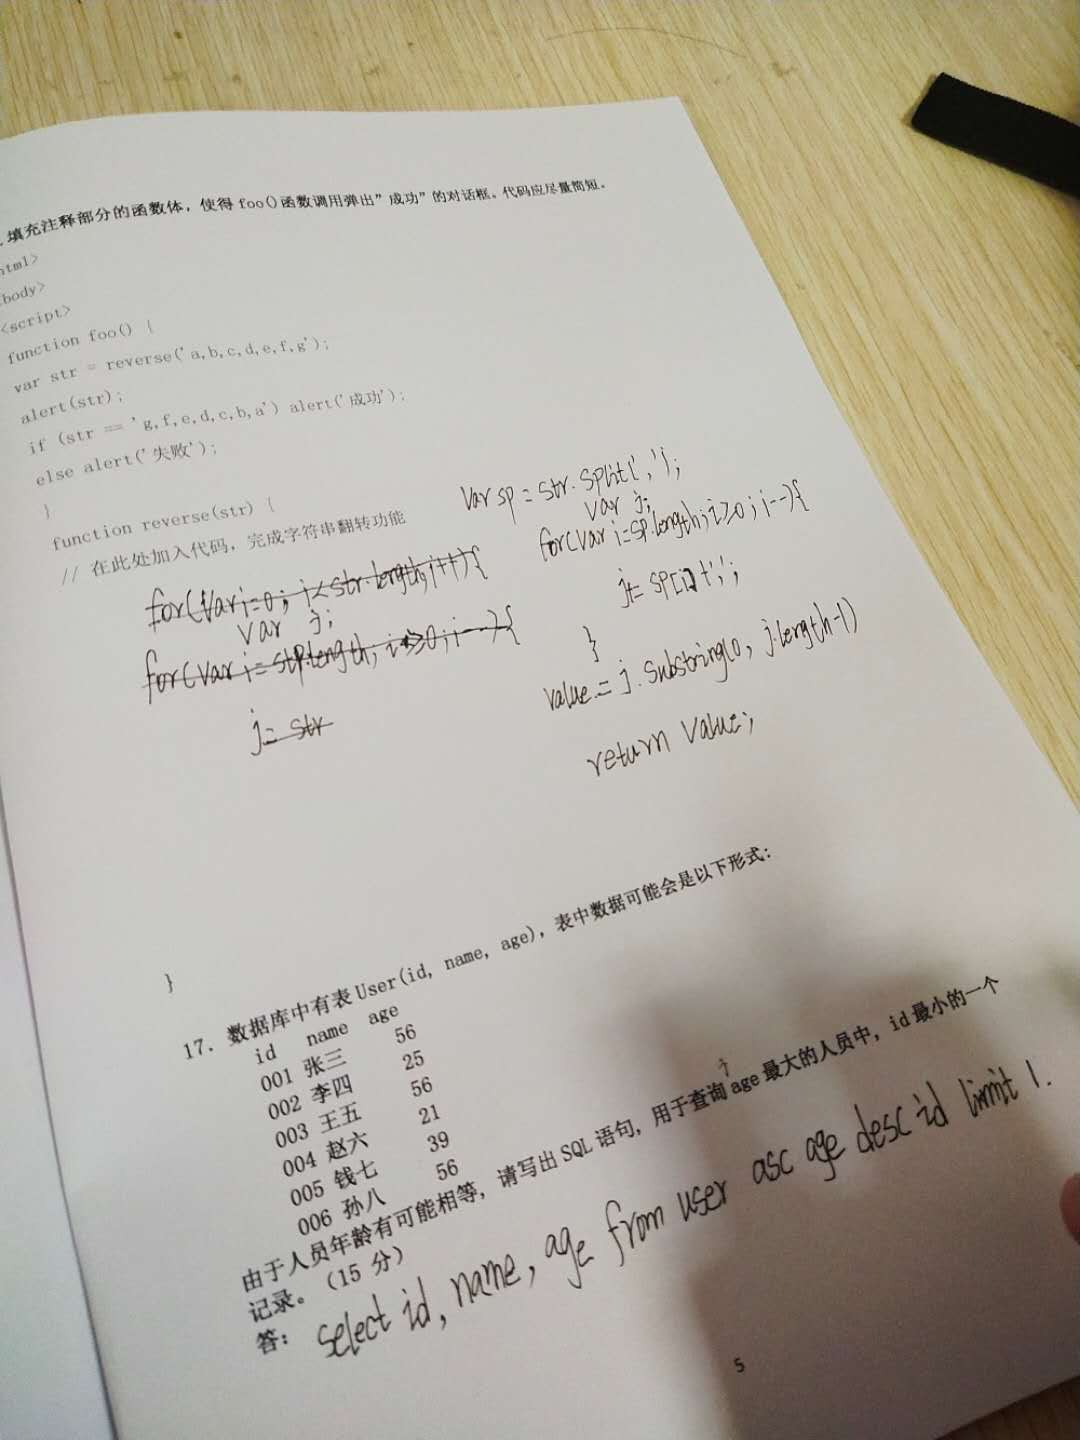 填充注释部分的函数体，使得 foo()函数调用弹出”成功”的对话框。代码应尽量简短。
html>
body>
<script>
function foo() {
var str = reverse('a,b,c,d,e,f,g');
alert(str);
if (str == 'g,f,e,d,c,b,a') alert('成功');
else alert('失败');
}
function reverse(str) {
// 在此处加入代码，完成字符串翻转功能
for(var i=0; i<str.length;i++){
var j;
for(var i=str.length; i>0;i--){
j= str
var sp = str.split(',');
var j;
for(var i=sp.length;i>0;i--){
j+= sp[i]+',';
}
value = j.substring(0, j.length-1)
return value;
}
17. 数据库中有表 User(id, name, age)，表中数据可能会是以下形式：
id name age
001 张三 56
002 李四 25
003 王五 56
004 赵六 21
005 钱七 39
006 孙八 56
由于人员年龄有可能相等，请写出 SQL 语句，用于查询 age 最大的人员中，id 最小的一个
记录。（15 分）
答： select id, name, age from user asc age desc id limit 1.
5